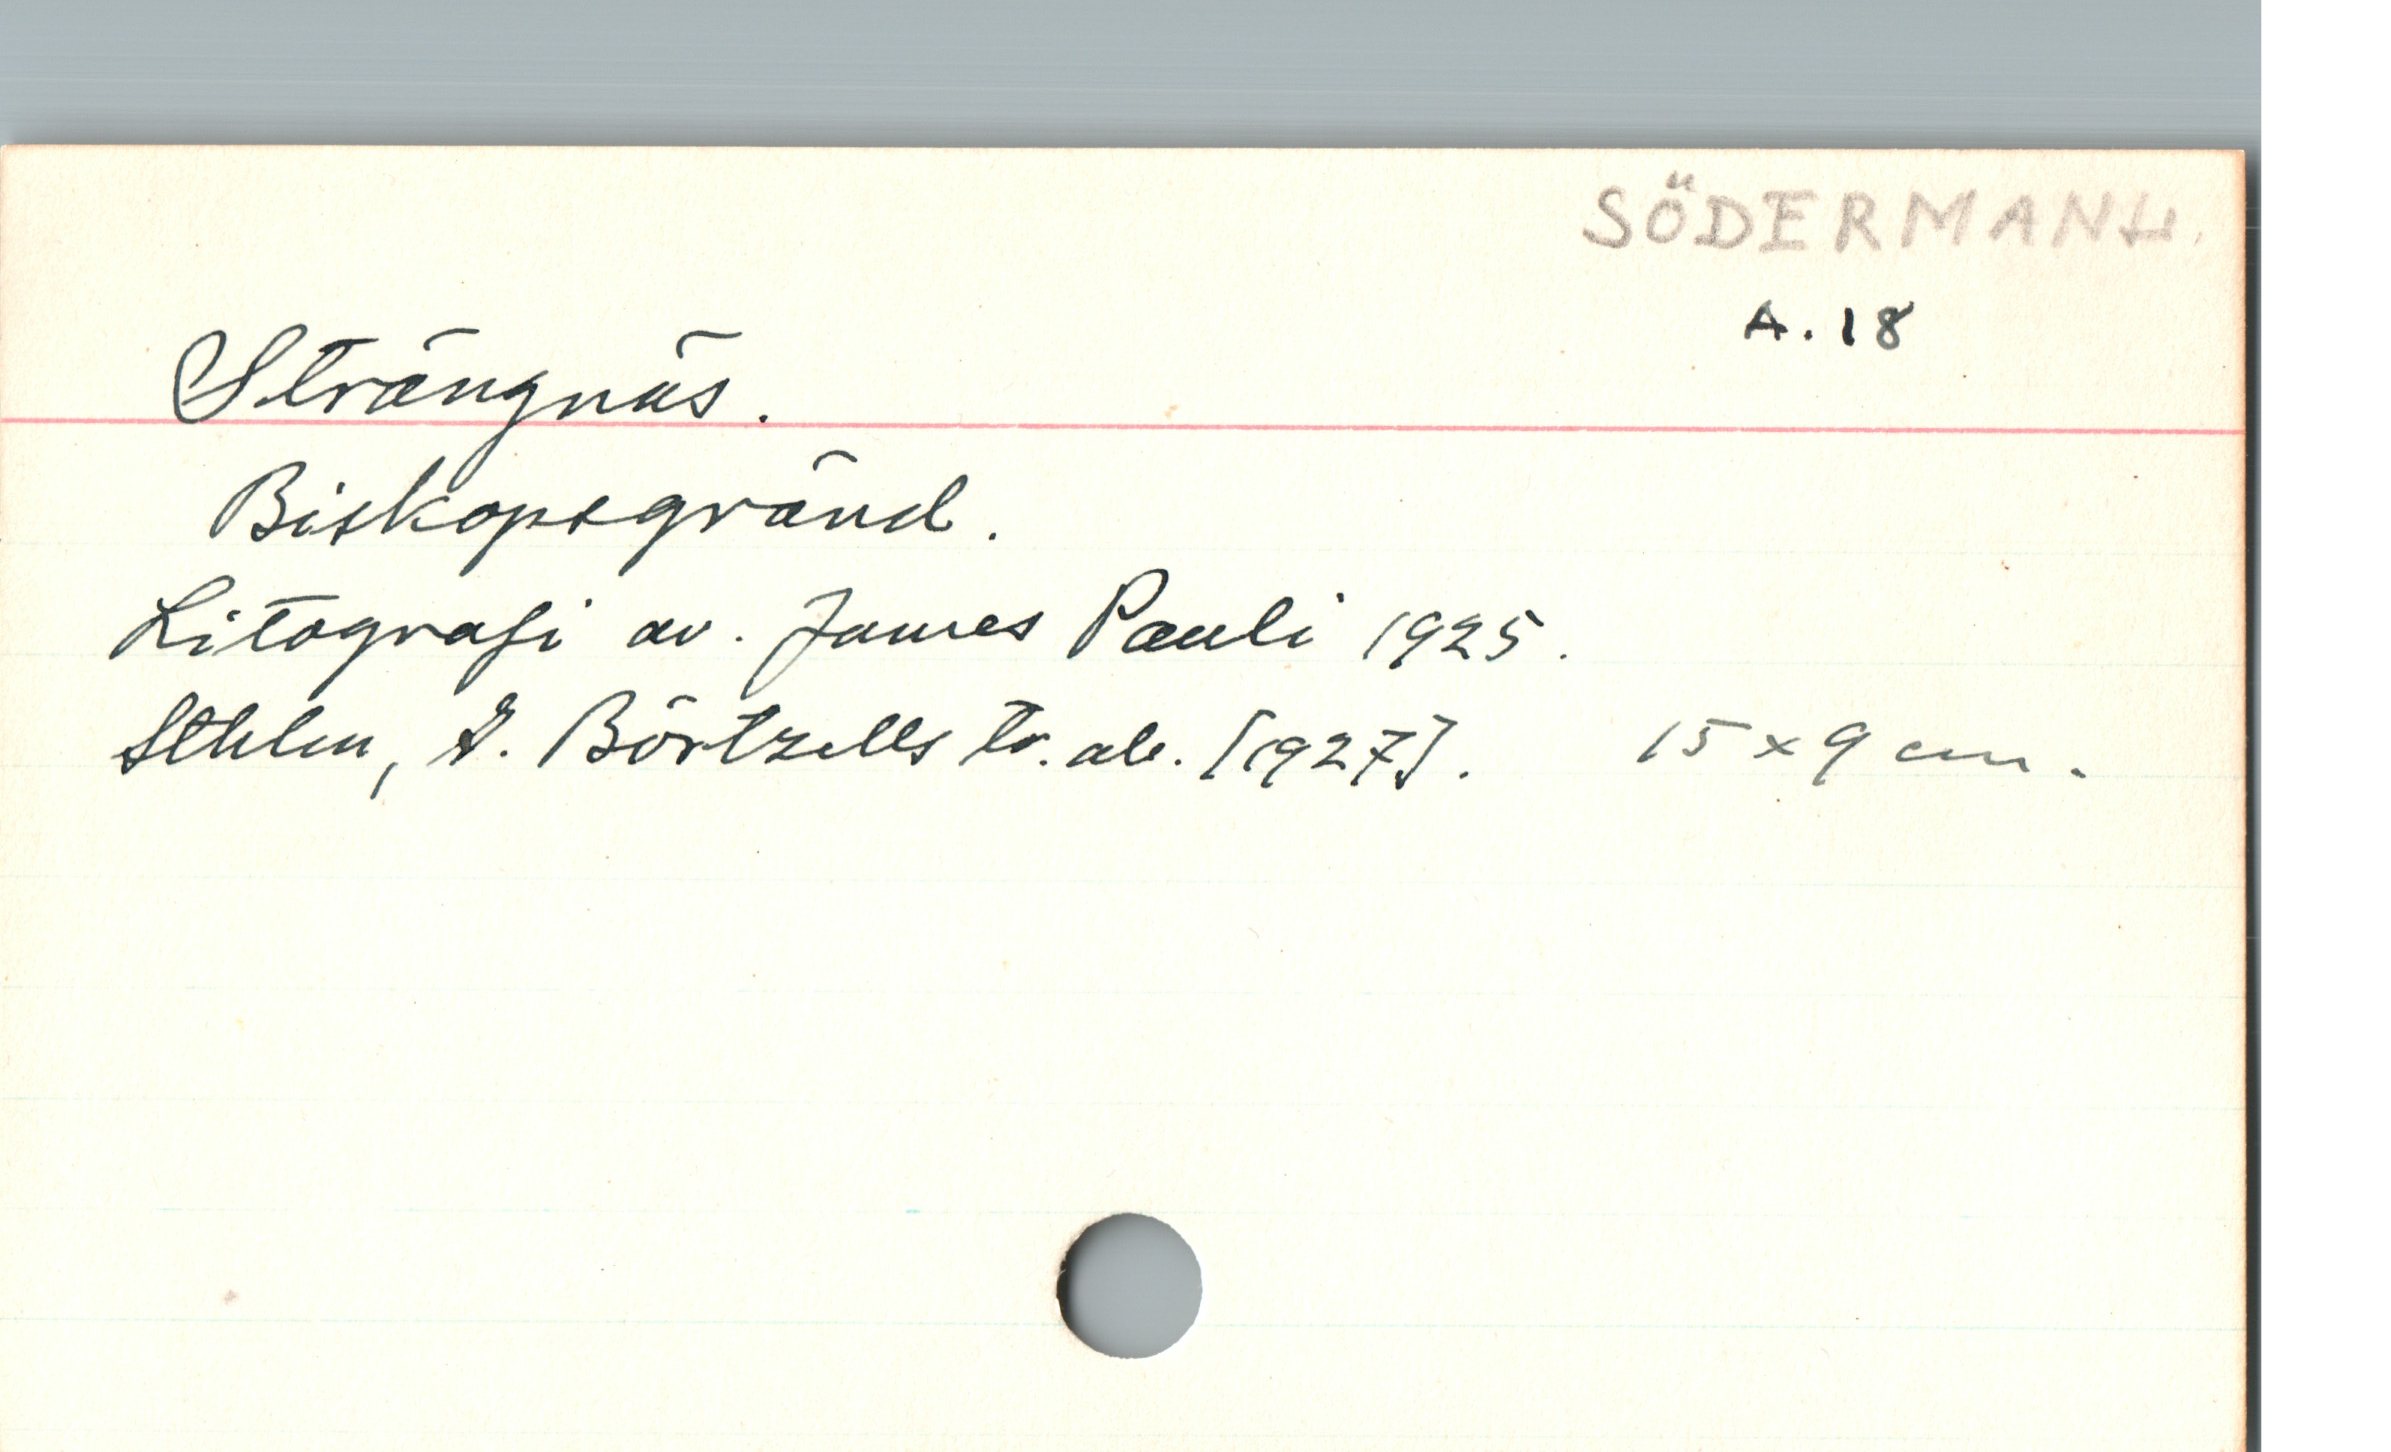 SÖDERMANL.
A. 18
Strängnäs.
Biskopsgränd.
Litografi av. James Pauli 1925.
Sthlm, G. Börtzells tr. ab. [1927]. 15 x 9 cm.